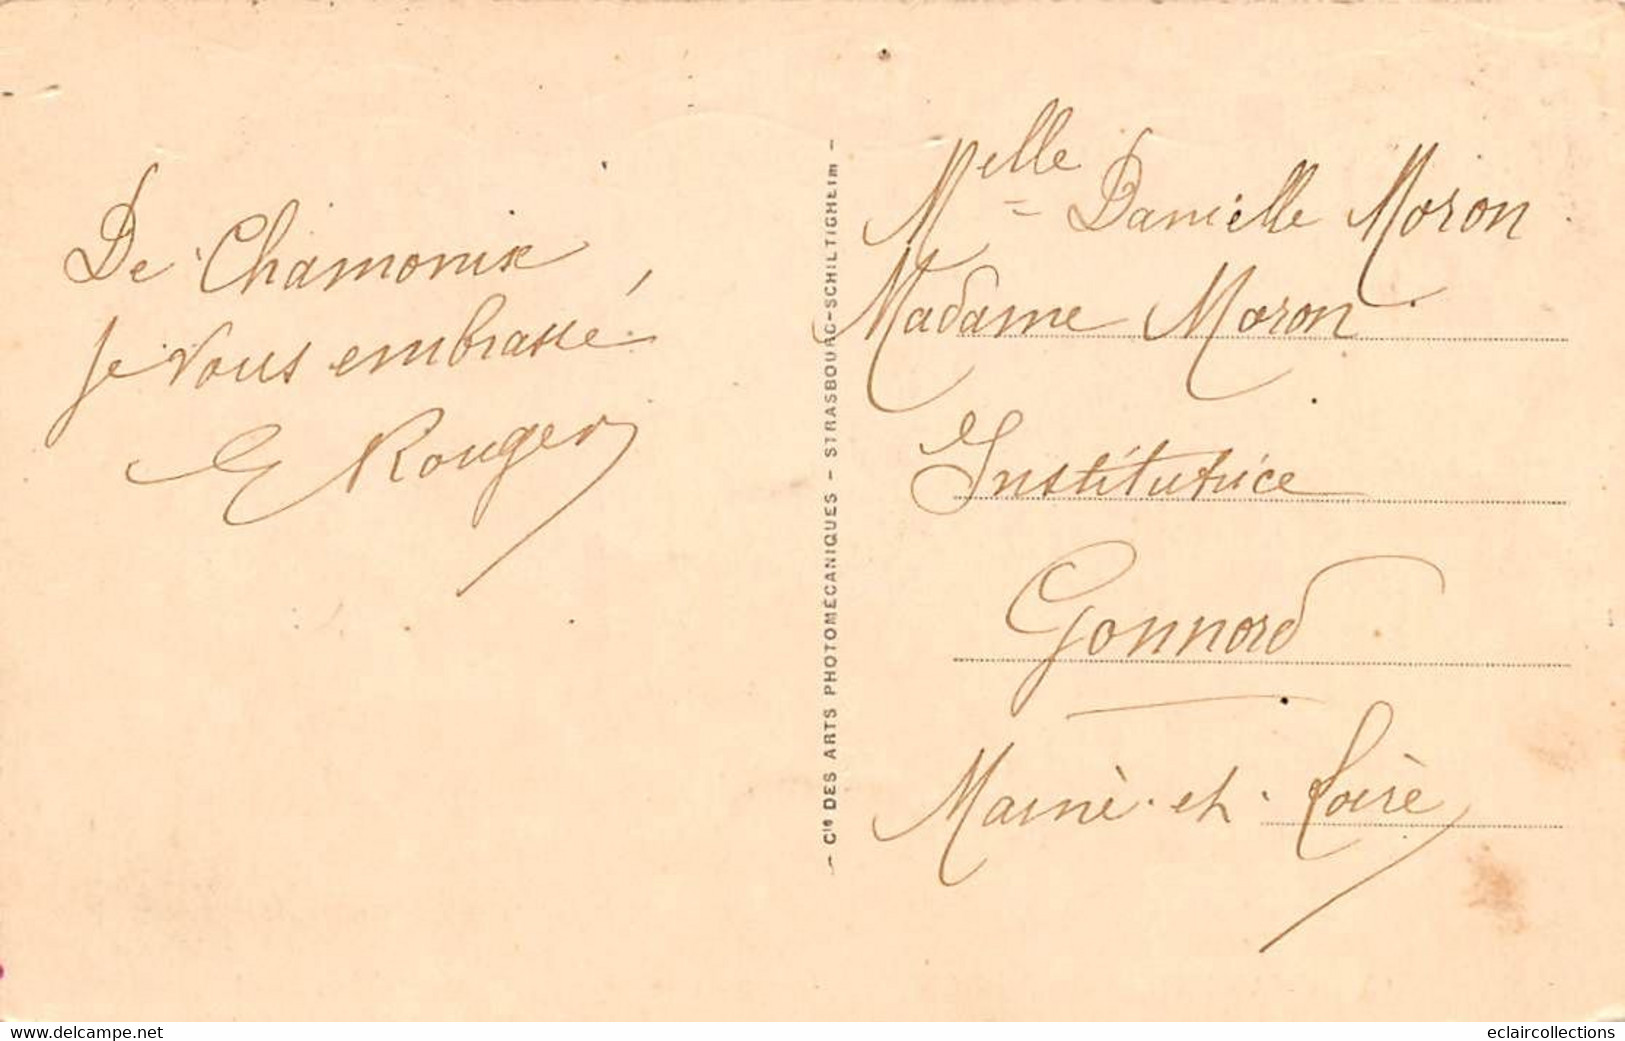 De Chamonix
je vous embrasse,
E Rouger
- Cie DES ARTS PHOTOMÉCANIQUES - STRASBOURG-SCHILTIGHEIM -
Melle Danielle Moron
Madame Moron
Institutrice
Gonnord
Maine-et-Loire
www.delcampe.net
eclaircollections